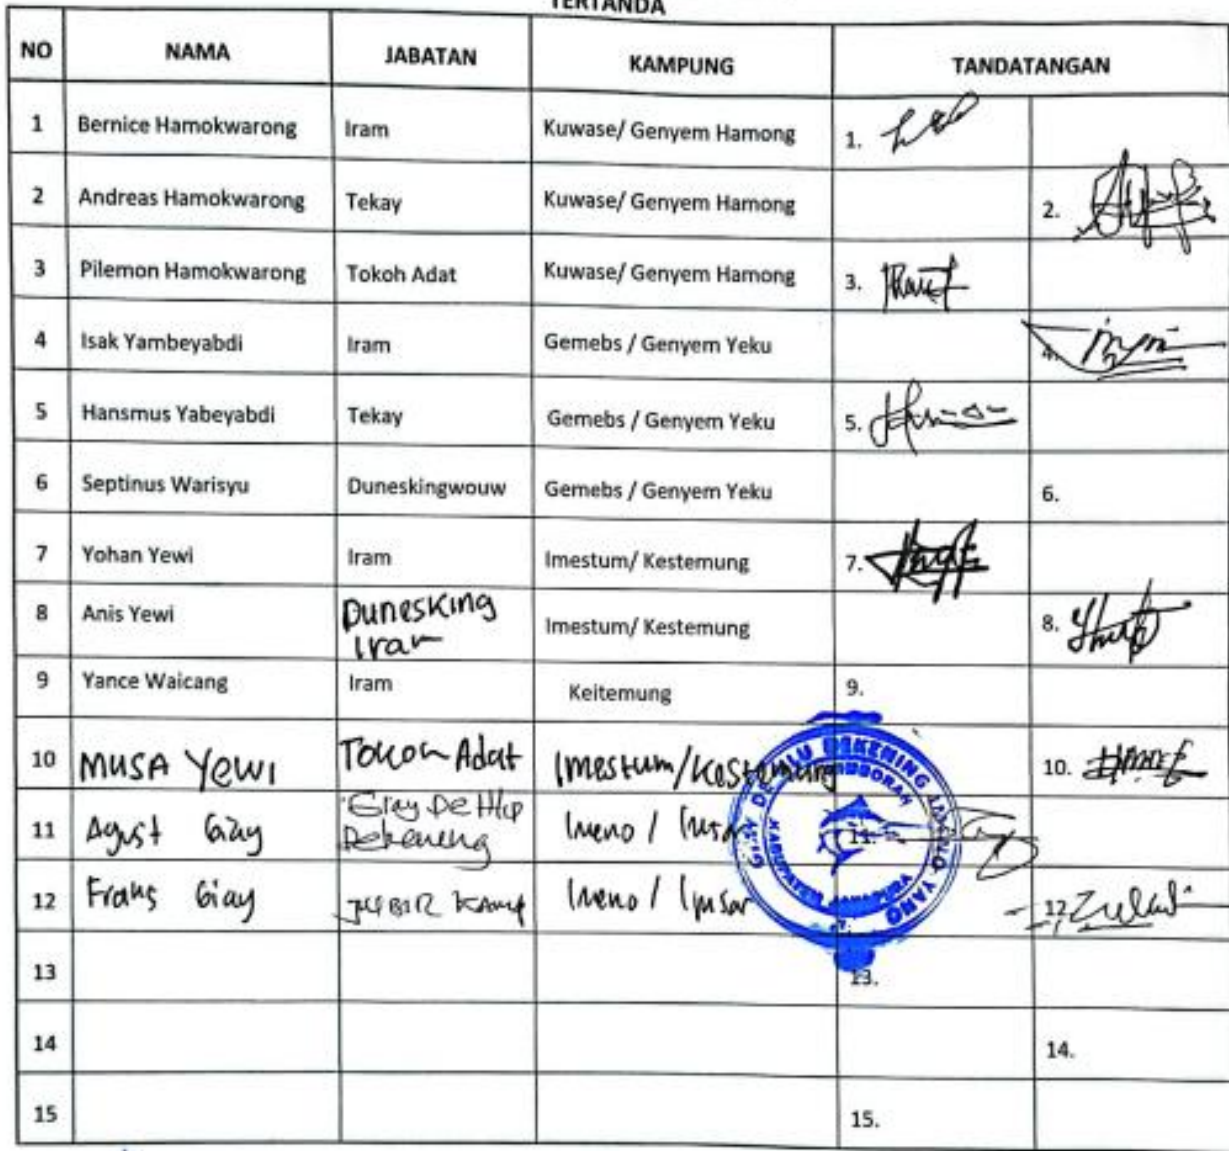 TERTANDA
NO NAMA JABATAN KAMPUNG TANDATANGAN
1 Bernice Hamokwarong Iram Kuwase/ Genyem Hamong 1.
2 Andreas Hamokwarong Tekay Kuwase/ Genyem Hamong 2.
3 Pilemon Hamokwarong Tokoh Adat Kuwase/ Genyem Hamong 3.
4 Isak Yambeyabdi Iram Gemebs / Genyem Yeku 4.
5 Hansmus Yabeyabdi Tekay Gemebs / Genyem Yeku 5.
6 Septinus Warisyu Duneskingwouw Gemebs / Genyem Yeku 6.
7 Yohan Yewi Iram Imestum/ Kestemung 7.
8 Anis Yewi Dunesking Iram Imestum/ Kestemung 8.
9 Yance Waicang Iram Keitemung 9.
10 MUSA Yewi Tokoh Adat Imestum/Kestemung 10.
11 Agust Giay Imeno / 11.
12 Frans Giay Imeno / 12.
KABUPATEN JAYAPURA
13 13.
14 14.
15 15.